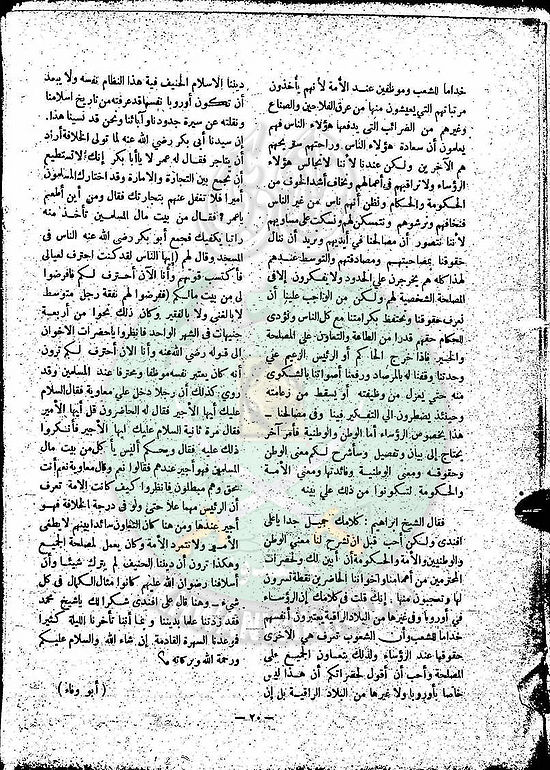 خداماً للشعب وموظفين عند الأمة لأنهم يأخذون
مرتباتهم التي يعيشون منها من عرق الفلاحين والصناع
وغيرهم من الضرائب التي يدفعها هؤلاء الناس فهم
يعلمون أن سعادة هؤلاء الناس وراحتهم سر يحبهم
هم الآخرين ولكن عندنا لأننا لانحاسب هؤلاء
الرؤساء ولا نراقبهم في أعمالهم ونخاف أشد الخوف من
الحكومة والحكام ونظن أنهم ناس من غير الناس
فنخافهم ونرشوهم ونتمسكن لهم ونسكت على مساويهم
لأننا نتصور أن مصالحنا في أيديهم ونريد أن ننال
حقوقنا بمصاحبتهم ومصادقتهم والتوسط عندهم
لهذا كله هم يخرجون على الحدود ولا يفكرون إلا في
المصلحة الشخصية لهم ولكن من الواجب علينا أن
نعرف حقوقنا ونحتفظ بكرامتنا مع كل الناس ونؤدى
للحكام حقهم قدرا من الطاعة والتعاون على المصلحة
والخير فاذا خرج الحاكم أو الرئيس الزعيم على
وحدتنا وقفنا له بالمرصاد ورفعنا أصواتنا بالشكوى
منه حتى يعزل من وظيفته أو يسقط من زعامته
وحينئذ يضطرون الى التفكير فينا وفي مصالحنا —
هذا بخصوص الرؤساء أما الوطن والوطنية فأمر آخر
يحتاج إلى بيان وتفصيل وسأشرح لكم معنى الوطن
وحقوقه ومعنى الوطنية وفائدتها ومعنى الأمة
والحكومة لتكونوا من ذلك على بينه
فقال الشيخ ابراهيم : كلامك جميل جدا ياعلى
افندى ولكن أحب قبل أن تشرح لنا معنى الوطن
والوطنيين والأمة والحكومة أن أبين لك ولحضرات
المحترمين من أعمامنا وأخواننا الحاضرين نقطة تسرون
لها وتعجبون منها . إنك قلت في كلامك إن الرؤساء
في أوروبا وفي غيرها من البلاد الراقية يعتبرون أنفسهم
خداما للشعب وأن الشعوب تعرف هي الأخرى
حقوقها عند الرؤساء ولذلك يتعاون الجميع على
المصلحة وأحب أن أقول لحضراتكم أن هذا ليس
خاصا بأوروبا ولا غيرها من البلاد الراقية بل إن
ديننا الاسلام الحنيف فيه هذا النظام نفسه ولا يبعد
أن تكون أوروبا نفسها قد عرفته من تاريخ اسلامنا
ونقلته عن سيرة جدودنا وآبائنا ونحن قد نسينا هذا .
إن سيدنا أبى بكر رضي الله عنه لما تولى الخلافة أراد
أن يتاجر فقال له عمر لا يا أبا بكر إنك لا تستطيع
أن تجمع بين التجارة والامارة وقد اختارك المسلمون
أميرا فلا تغفل عنهم بتجارتك فقال ومن أين أطعم
ياعمر ؟ فقال من بيت مال المسلمين تأخذ منه
راتبا يكفيك فجمع أبو بكر رضي الله عنه الناس في
المسجد وقال لهم (إيها الناس لقد كنت احترف لعيالى
فأكتسب قوتهم وأنا الآن أحترف لكم فافرضوا
لى من بيت مالكم) ففرضوا لهم نفقة رجل متوسط
لا بالغنى ولا بالفقير وكان ذلك نحوا من أربعة
جنيهات في الشهر الواحد فانظروا ياحضرات الاخوان
الى قوله رضي الله عنه وأنا الان أحترف لكم ترون
أنه كان يعتبر نفسه موظفا ومحترفا عند المسلمين وقد
روى : كذلك أن رجلا دخل على معاوية فقال السلام
عليك أيها الأجير فقال له الحاضرون قل أيها الأمير
فقال مرة ثانية السلام عليك أيها الأجير فأنكروا
ذلك عليه فقال ويحكم أليس يأكل من بيت مال
المسلمين فهو أجير عندهم فقالوا نعم وقال معاوية نعم أنت
بحق وهم مبطلون فانظروا كيف كانت الامة تعرف
أن الرئيس مهما علا حتى ولو في درجة الخلافة فهو
أجير عندها ومن هنا كان التعاون سائدا بينهم لا يطغى
الأمير ولا تتمرد الأمة وكان يعمل لمصلحة الجميع
وهكذا ترون أن ديننا الحنيف لم يترك شيئا وأن
أسلافنا رضوان الله عليهم كانوا مثال الكمال في كل
شيء . وهنا قال على افندى شكرا لك ياشيخ محمد
فقد زدتنا علما بديننا وبما أننا تأخرنا الليلة كثيرا
فوعدنا السهرة القادمة إن شاء الله والسلام عليكم
ورحمة الله وبركاته م؟
(أبو وفاء)
— ٢٠ —